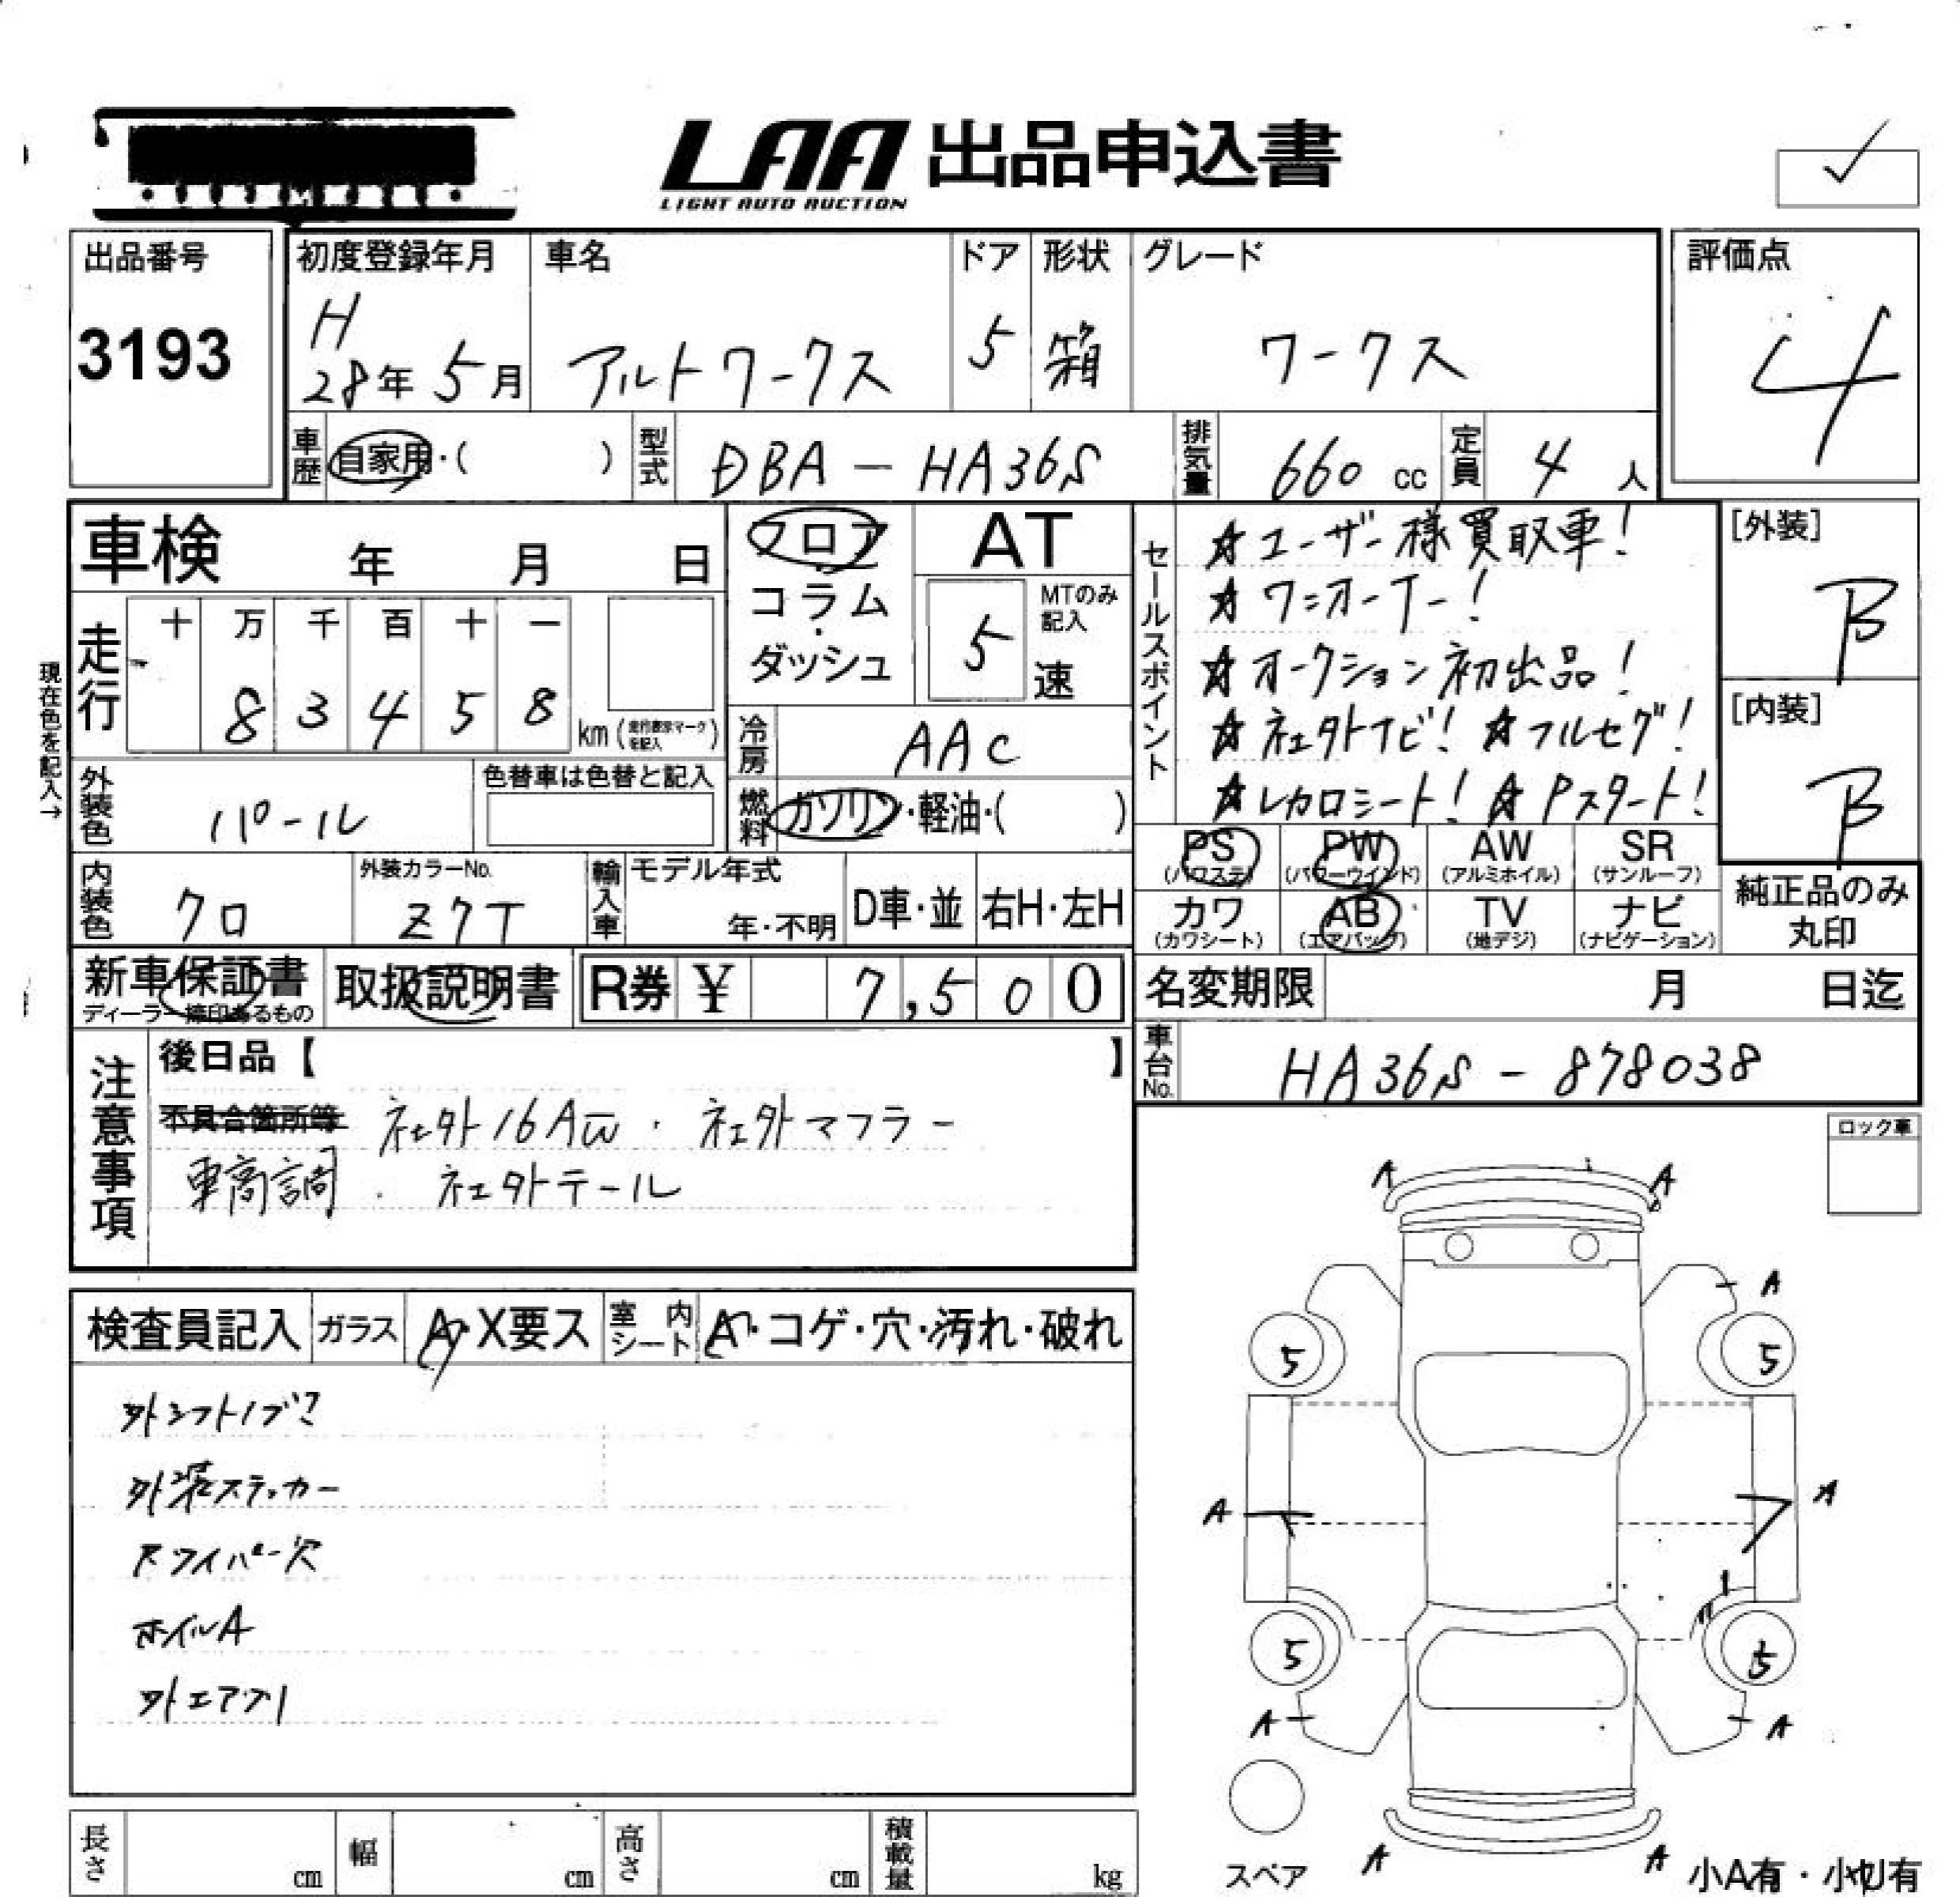 LAA 出品申込書
LIGHT AUTO AUCTION
出品番号
3193
初度登録年月
H
28年 5月
車名
アルトワークス
ドア
5
形状
箱
グレード
ワークス
評価点
4
車歴 自家用・( )
型式 DBA-HA36S
排気量 660 cc
定員 4 人
車検 年 月 日
走行
十 万 千 百 十 一
8 3 4 5 8
km
現在色を記入→
フロア・コラム・ダッシュ
AT
5 速
MTのみ記入
冷房 AAC
燃料 ガソリン・軽油・( )
外装色 パール
色替車は色替と記入
内装色 クロ
外装カラーNo.
Z7T
輸入車
モデル年式
年・不明
D車・並
右H・左H
セールスポイント
☆ユーザー様買取車!
☆ワンオーナー!
☆オークション初出品!
☆社外ナビ! ☆フルセグ!
☆レカロシート! ☆Pスタート!
[外装]
B
[内装]
B
PS (パワステ)
PW (パワーウインド)
AW (アルミホイル)
SR (サンルーフ)
カワ (カワシート)
AB (エアバック)
TV (地デジ)
ナビ (ナビゲーション)
純正品のみ丸印
新車保証書
ディーラー捺印あるもの
取扱説明書
R券 ¥ 7,500
名変期限 月 日迄
車台No. HA36S-878038
注意事項
後日品【 】
不具合箇所等 社外16AW・社外マフラー
車高調・社外テール
ロック車
検査員記入
ガラス A・X要ス
室内シート A・コゲ・穴・汚れ・破れ
外シフトノブ
外装ステッカー
Rワイパー穴
ホイルA
外エアクリ
A A
A
5 5
A A
5 5
A A
スペア
A A
小A有・小U有
長さ cm
幅 cm
高さ cm
積載量 kg